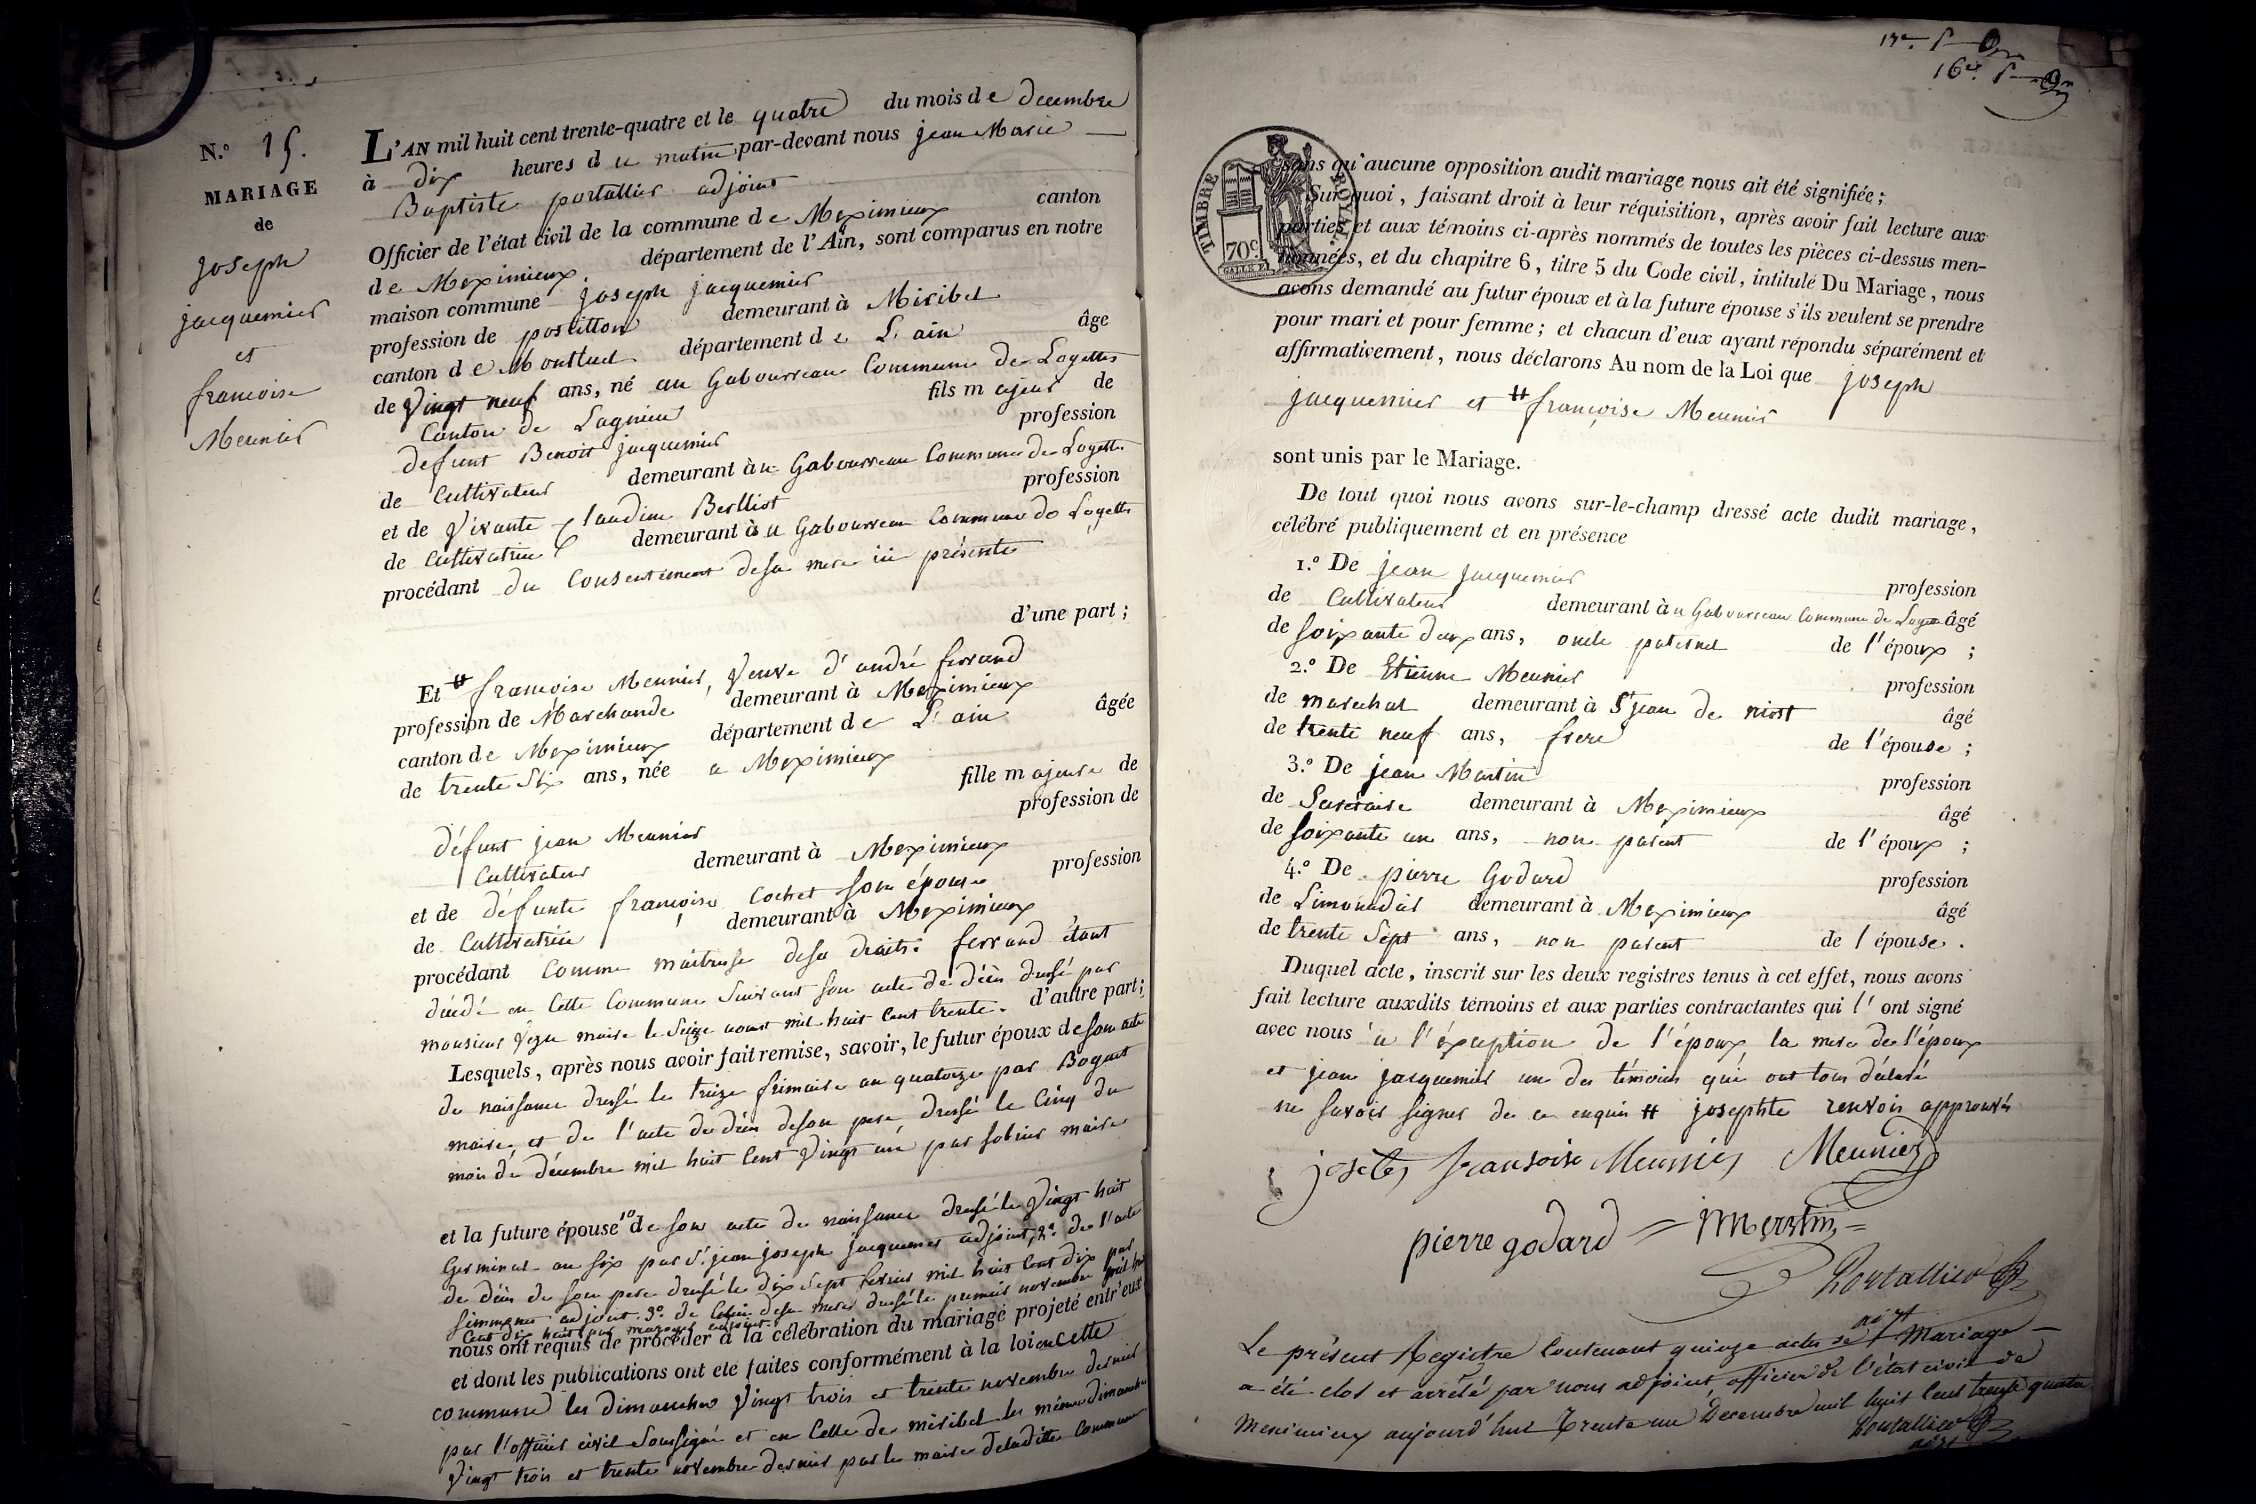 N.º 15.
MARIAGE
de
joseph
jacquemier
et
francoise
Meunier
L'AN mil huit cent trente-quatre et le quatre du mois de decembre
à dix heures du matin par-devant nous jean Marie
Baptiste portallier adjoint
Officier de l'état civil de la commune de Meximieux canton
de Meximieux département de l'Ain, sont comparus en notre
maison commune joseph jacquemier
profession de postillon demeurant à Miribel
canton de Montluel département de L'ain âge
de Vingt neuf ans, né au Gabourreau Commune de Loyettes
Canton de Lagnieu fils majeur de
defunt Benoit jacquemier profession
de Cultivateur demeurant au Gabourreau Commune de Loyettes
et de Vivante Claudine Berlliot profession
de Cultivatrice demeurant au Gabourreau Commune de Loyettes
procédant du Consentement de sa mere ici présente
d'une part;
Et # francoise Meunier, Veuve d'andré ferrand
profession de Marchande demeurant à Meximieux
canton de Meximieux département de L'ain âgée
de trente Six ans, née a Meximieux
fille majeure de
défunt jean Meunier profession de
Cultivateur demeurant à Meximieux
et de défunte francoise Cochet son épouse profession
de Cultivatrice demeurant à Meximieux
procédant Comme maitresse de sa droits: ferrand étant
décédé en Cette Commune Suivant son acte de décès dressé par
monsieur maire le Seize aout mil huit Cent trente. d'autre part;
Lesquels, après nous avoir fait remise, savoir, le futur époux de son acte
de naissance dressé le treize frimaire an quatorze par Boguet
maire et de l'acte de décès de son pere dressé le Cinq du
mois de décembre mil huit Cent Vingt un par maire
et la future épouse 1º de son acte de naissance dressé le Vingt huit
Germinal an Six par Sr. jean joseph jacquemet adjoint, 2º. de l'acte
de décès de son pere dressé le dix Sept fevrier mil huit Cent dix par
adjoint. 3º. de Celui de sa mere dressé le premier novembre mil huit
Cent dix huit par adjoint
nous ont requis de procéder à la célébration du mariage projeté entr'eux
et dont les publications ont été faites conformément à la loi en cette
commune les dimanches Vingt trois et trente novembre dernier
par l'officier civil Soussigné et en Celle de miribel les mêmes dimanches
Vingt trois et trente novembre dernier par le maire de ladite Commune
16e
TIMBRE ROYAL.
70c.
sans qu'aucune opposition audit mariage nous ait été signifiée;
Sur quoi, faisant droit à leur réquisition, après avoir fait lecture aux
parties et aux témoins ci-après nommés de toutes les pièces ci-dessus men-
tionnées, et du chapitre 6, titre 5 du Code civil, intitulé Du Mariage, nous
avons demandé au futur époux et à la future épouse s'ils veulent se prendre
pour mari et pour femme; et chacun d'eux ayant répondu séparément et
affirmativement, nous déclarons Au nom de la Loi que joseph
jacquemier et # françoise Meunier
sont unis par le Mariage.
De tout quoi nous avons sur-le-champ dressé acte dudit mariage,
célébré publiquement et en présence
1.º De jean jacquemier profession
de Cultivateur demeurant au Gabourreau Commune de Loyettes âgé
de soixante deux ans, oncle paternel de l'époux;
2.º De Etienne Meunier profession
de marechal demeurant à St jean de niost âgé
de trente neuf ans, frere de l'épouse;
3.º De jean Martin profession
de Secretaire demeurant à Meximieux âgé
de soixante un ans, non parent de l'époux;
4.º De pierre Godard profession
de Limonadier demeurant à Meximieux âgé
de trente Sept ans, non parent de l'épouse.
Duquel acte, inscrit sur les deux registres tenus à cet effet, nous avons
fait lecture auxdits témoins et aux parties contractantes qui l'ont signé
avec nous à l'éxception de l'époux la mere de l'époux
et jean jacquemier un des témoins qui ont tous déclaré
ne savoir signer de ce enquis # josephte renvois approuvés
josete fransoise Meunier Meunier
pierre godard jmartin
Portallier
adjt
Le présent Registre Contenant quinze actes de Mariage
a été clos et arrêté par nous adjoint officier de l'état civil de
Meximieux aujourd'hui Trente un Décembre mil huit Cent trente quatre
Portallier
adjt